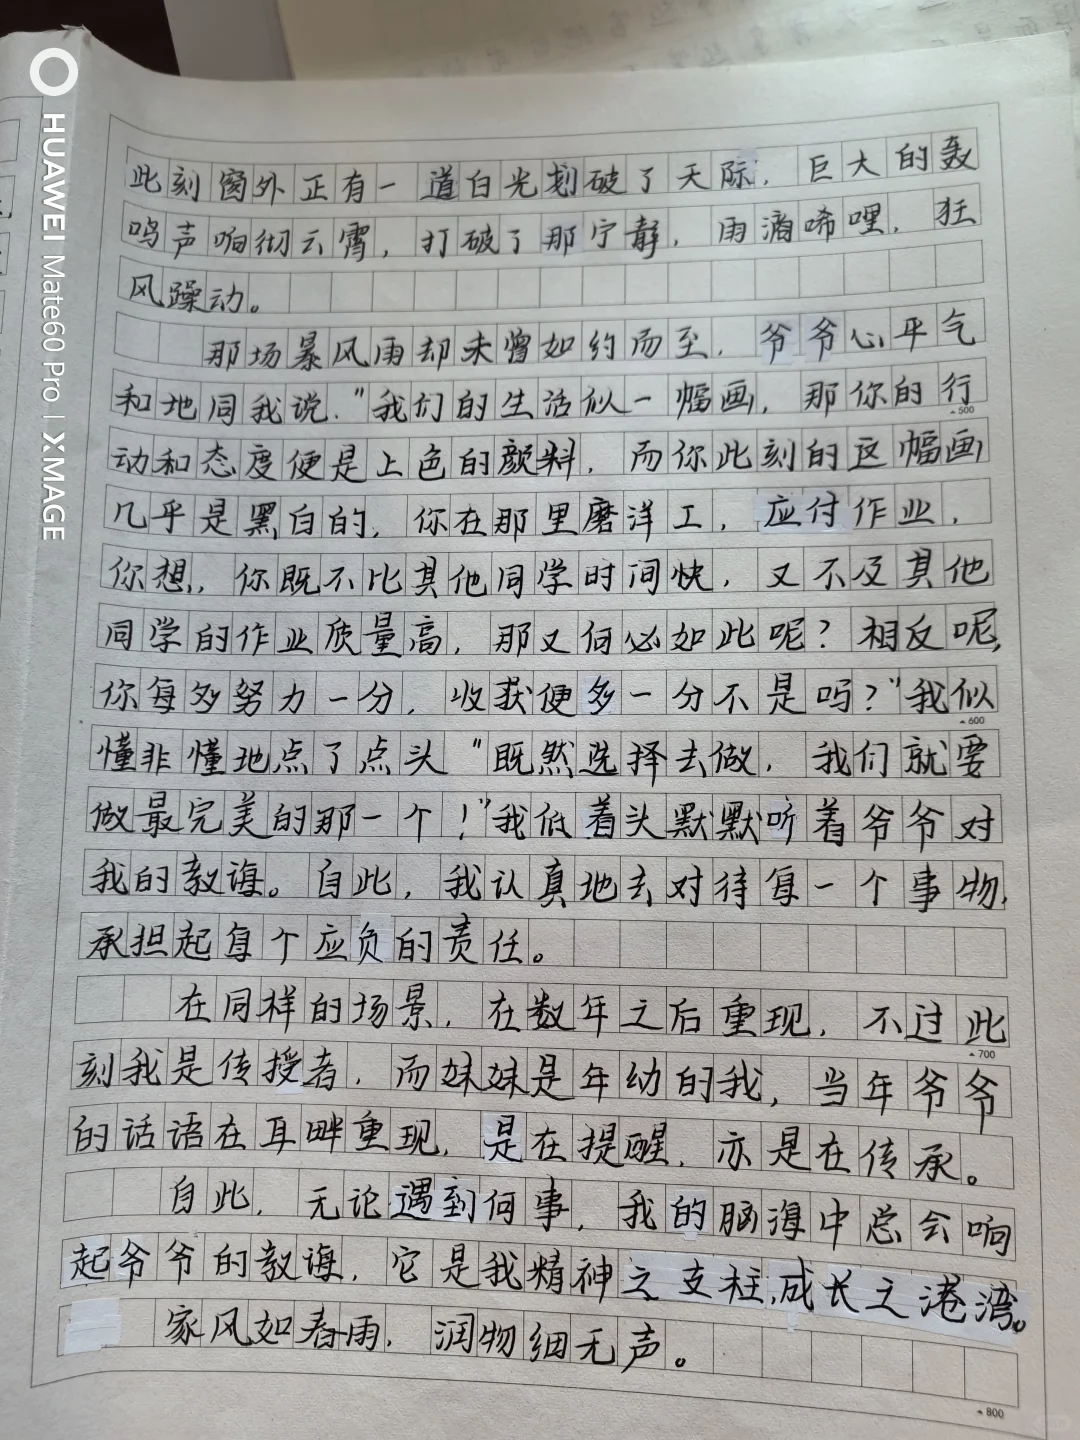 此刻窗外正有一道白光划破了天际，巨大的轰
鸣声响彻云霄，打破了那宁静，雨滴唏哩，狂
风躁动。
那场暴风雨却未曾如约而至，爷爷心平气
和地同我说."我们的生活似一幅画，那你的行
500
动和态度便是上色的颜料，而你此刻的这幅画
几乎是黑白的，你在那里磨洋工，应付作业，
你想，你既不比其他同学时间快，又不及其他
同学的作业质量高，那又何必如此呢？相反呢，
你每多努力一分，收获便多一分不是吗？"我似
600
懂非懂地点了点头"既然选择去做，我们就要
做最完美的那一个！"我低着头默默听着爷爷对
我的教诲。自此，我认真地去对待每一个事物，
承担起每个应负的责任。
在同样的场景，在数年之后重现，不过此
700
刻我是传授者，而妹妹是年幼的我，当年爷爷
的话语在耳畔重现，是在提醒，亦是在传承。
自此，无论遇到何事，我的脑海中总会响
起爷爷的教诲，它是我精神之支柱，成长之港湾。
家风如春雨，润物细无声。
800
HUAWEI Mate60 Pro | XMAGE